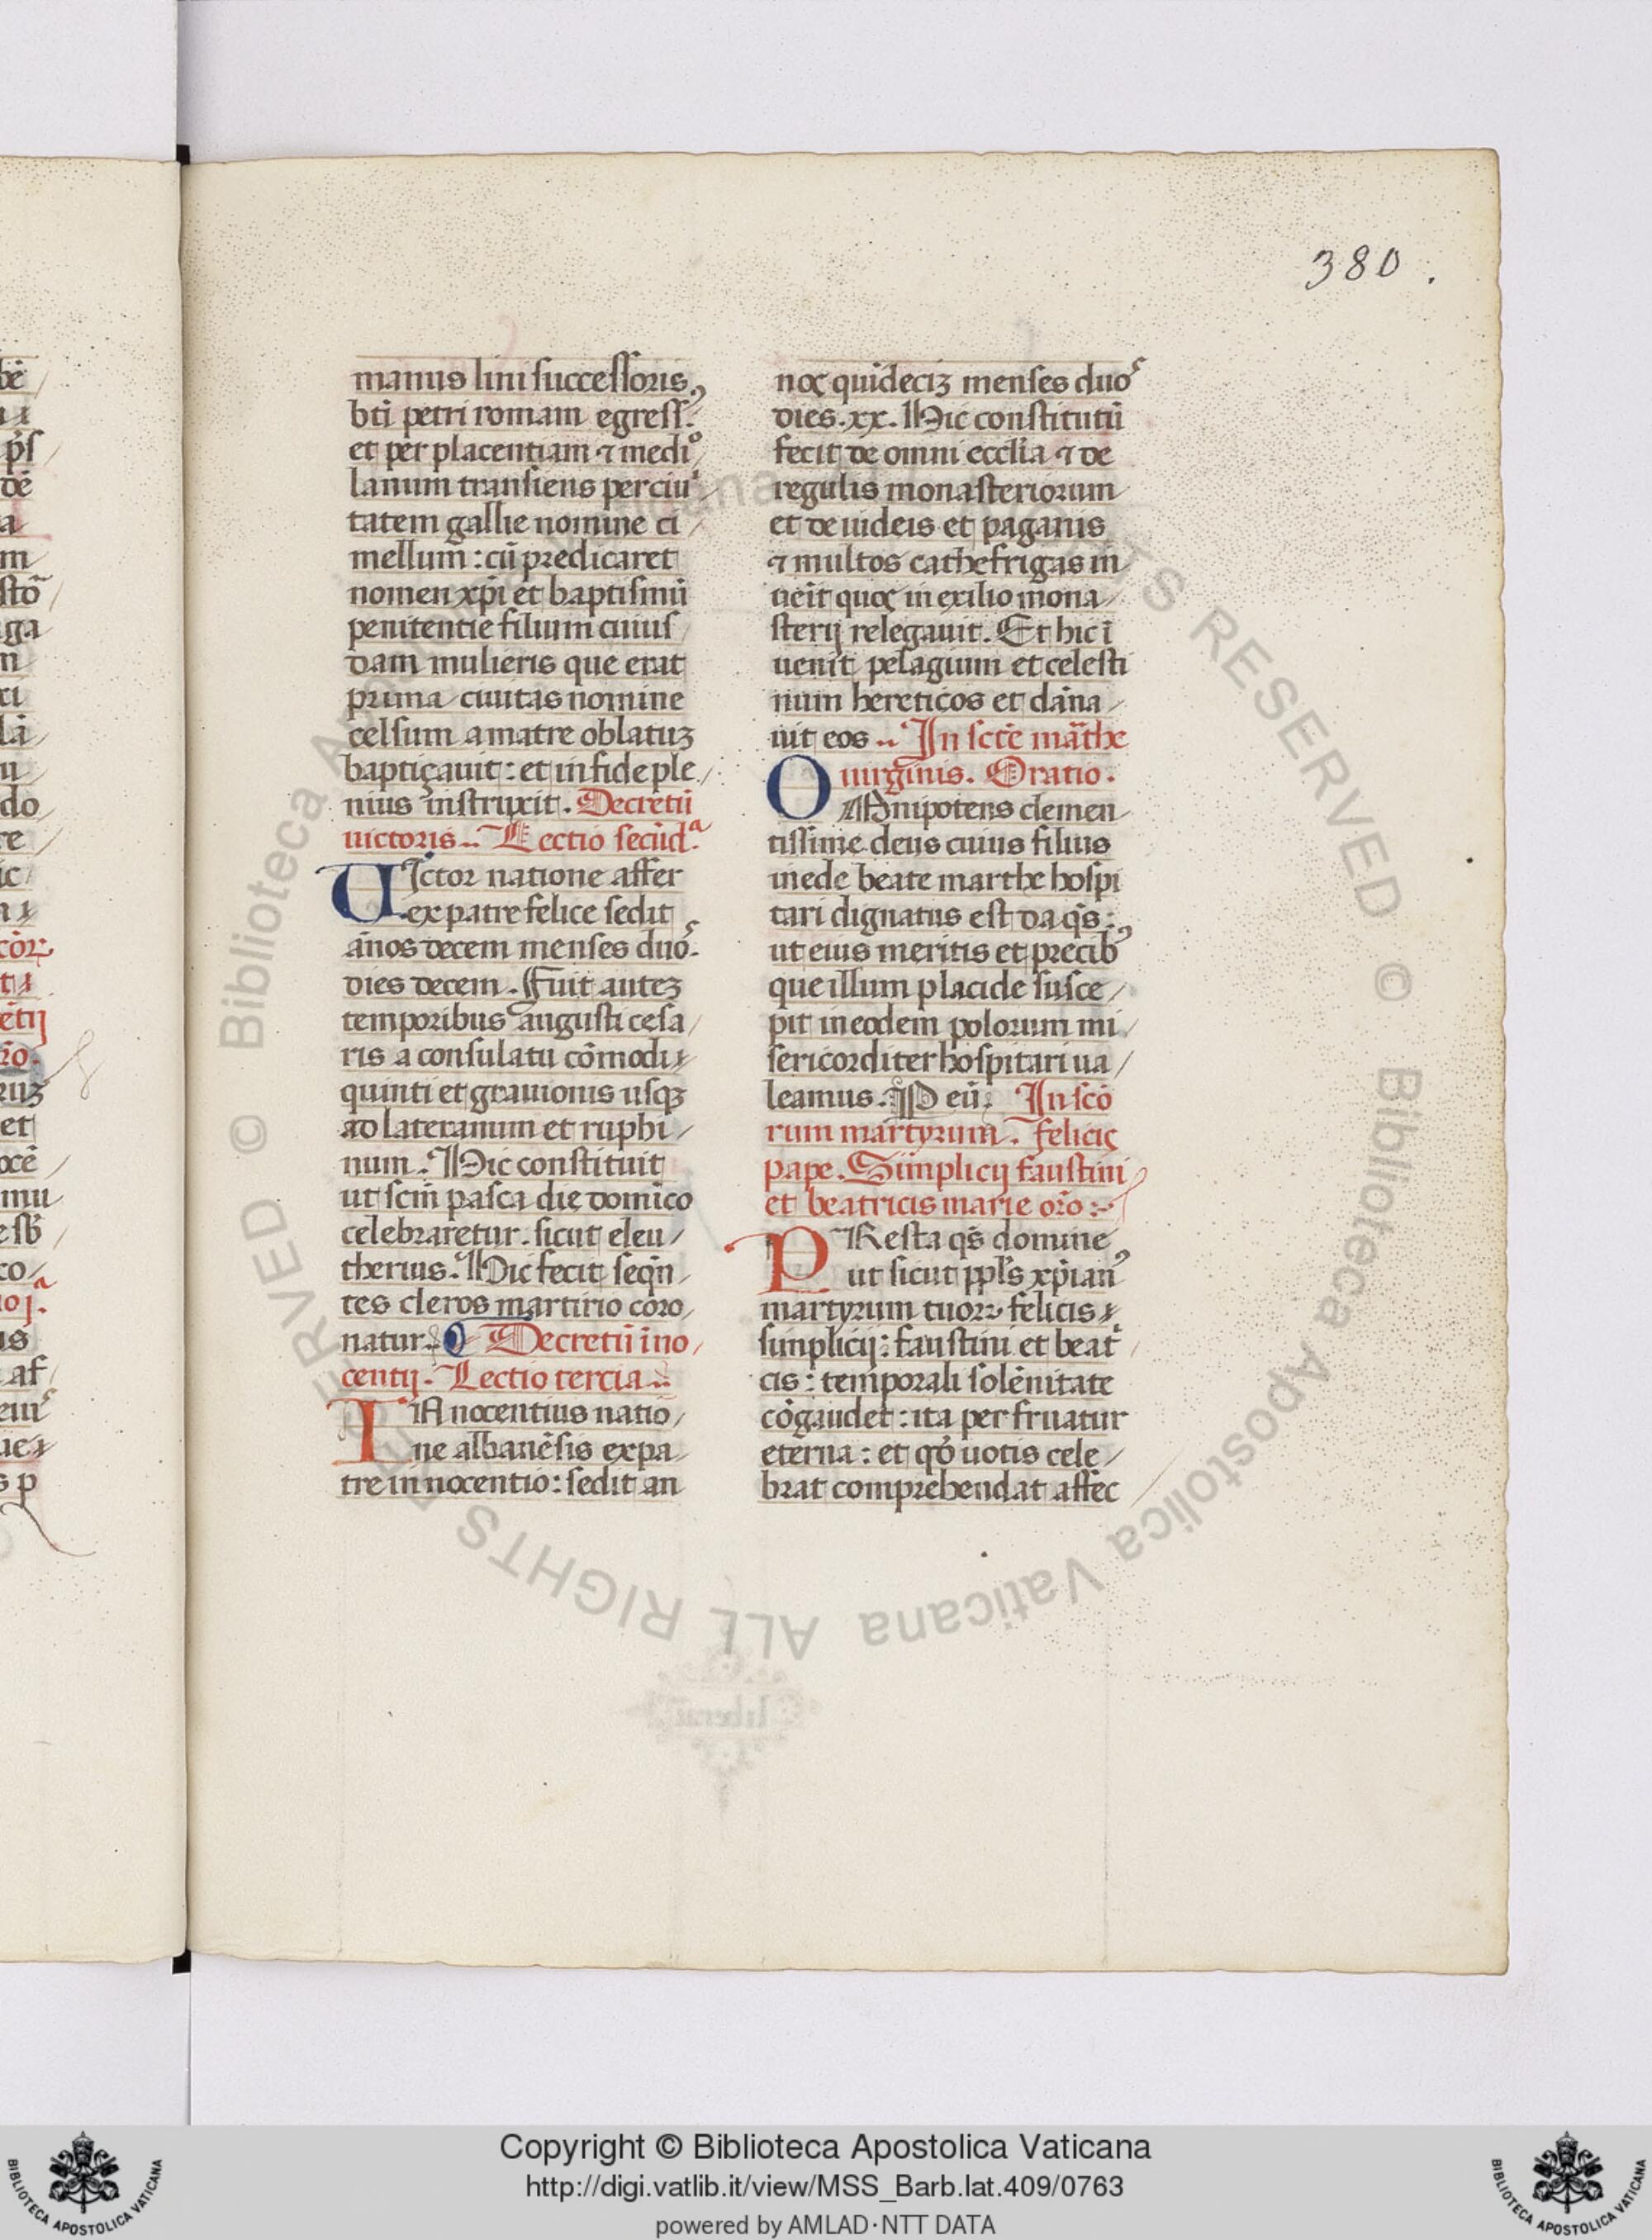 380.
manus lini successoris
bti petri romam egress⁹.
et per placentiam ⁊ medio
lanum transiens per ciui
tatem gallie nomine ci
mellum : cū predicaret
nomen xp̄i et baptismū
penitentie filium cuius
dam mulieris que erat
prima ciuitas nomine
celsum a matre oblatuꝫ
baptiçauit : et in fide ple
nius instruxit. Decretū
uictoris .. Lectio secūdᵃ.
UIctor natione affer
ex patre felice sedit
ān̄os decem menses duoˢ.
dies decem. Fuit auteꝫ
temporibus augusti cesa
ris a consulatu cōmodi
quinti et grauionis usqꝫ
ad lateranum et ruphi
num. Hic constituit
ut scm̄ pasca die domīco
celebraretur. sicut eleu
therius. Hic fecit seqn̄
tes cleros martirio coro
natur. Decretū ino
centij. Lectio tercia ..
INnocentius natio
ne albanēsis ex pa
tre innocentio : sedit an
noꝭ quīdeciꝫ menses duoˢ
dies .xx. Hic constitutū
fecit de omni ecclīa ⁊ de
regulis monasteriorum
et de iudeis et paganis
⁊ multos cathefrigas in
uēit quoꝭ in exilio mona
sterij relegauit. Et hic ī
uenit pelagium et celesti
num hereticos et dāna
uit eos .. In scte māthe
uirginis. Oratio.
OMnipotens clemen
tissime deus cuius filius
in ede beate marthe hospi
tari dignatus est da qs̄ :
ut eius meritis et precib⁹
que illum placide susce
pit in eodem polorum mi
sericorditer hospitari ua
leamus. P eū. In scō
rum martyrum. felicis
pape. Simplicij faustini
et beatricis marie or̄o :
PResta qs̄ domine
ut sicut ppl̄s xp̄ian⁹
martyrum tuoꝝ felicis
simplicij : faustini et beatⁱ
cis : temporali solēnitate
cōgaudet : ita perfruatur
eterna : et qḋ uotis cele
brat comprehendat affec
Copyright © Biblioteca Apostolica Vaticana
http://digi.vatlib.it/view/MSS_Barb.lat.409/0763
powered by AMLAD·NTT DATA
BIBLIOTECA APOSTOLICA VATICANA
BIBLIOTECA APOSTOLICA VATICANA
© Biblioteca Apostolica Vaticana ALL RIGHTS RESERVED © Biblioteca Apostolica Vaticana ALL RIGHTS RESERVED